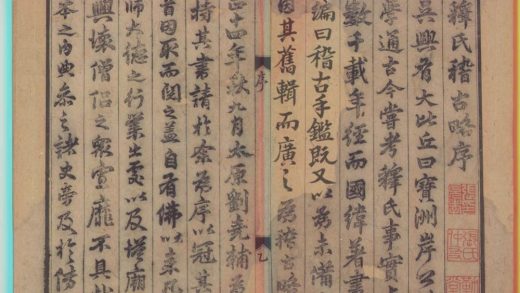 釋氏稽古略序
吳興有大比丘曰寶洲岸公
學通古今嘗考釋氏事實上
數千載年經而國緯著書
編曰稽古手鑑既又以為未備
因其舊輯而廣之為稽古略
序
乙
正十四年秋九月太原劉堯輔為
持其書請於余為序以冠其
首因取而閱之蓋自有佛以來
師大德之行業出處以及塔廟
興壞僧侶之衆寡靡不具
本之內典參之諸史旁及於傳